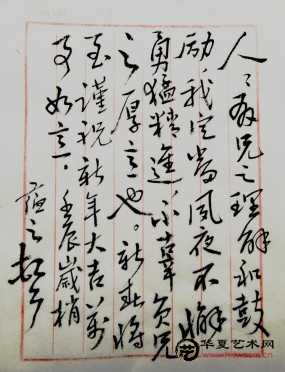 人兄之理解和鼓
励我定当夙夜不懈
勇猛精進不辜负兄
之厚意也。新春将
至谨祝新年大吉萬
事如意。壬辰嵗梢
华夏艺术网